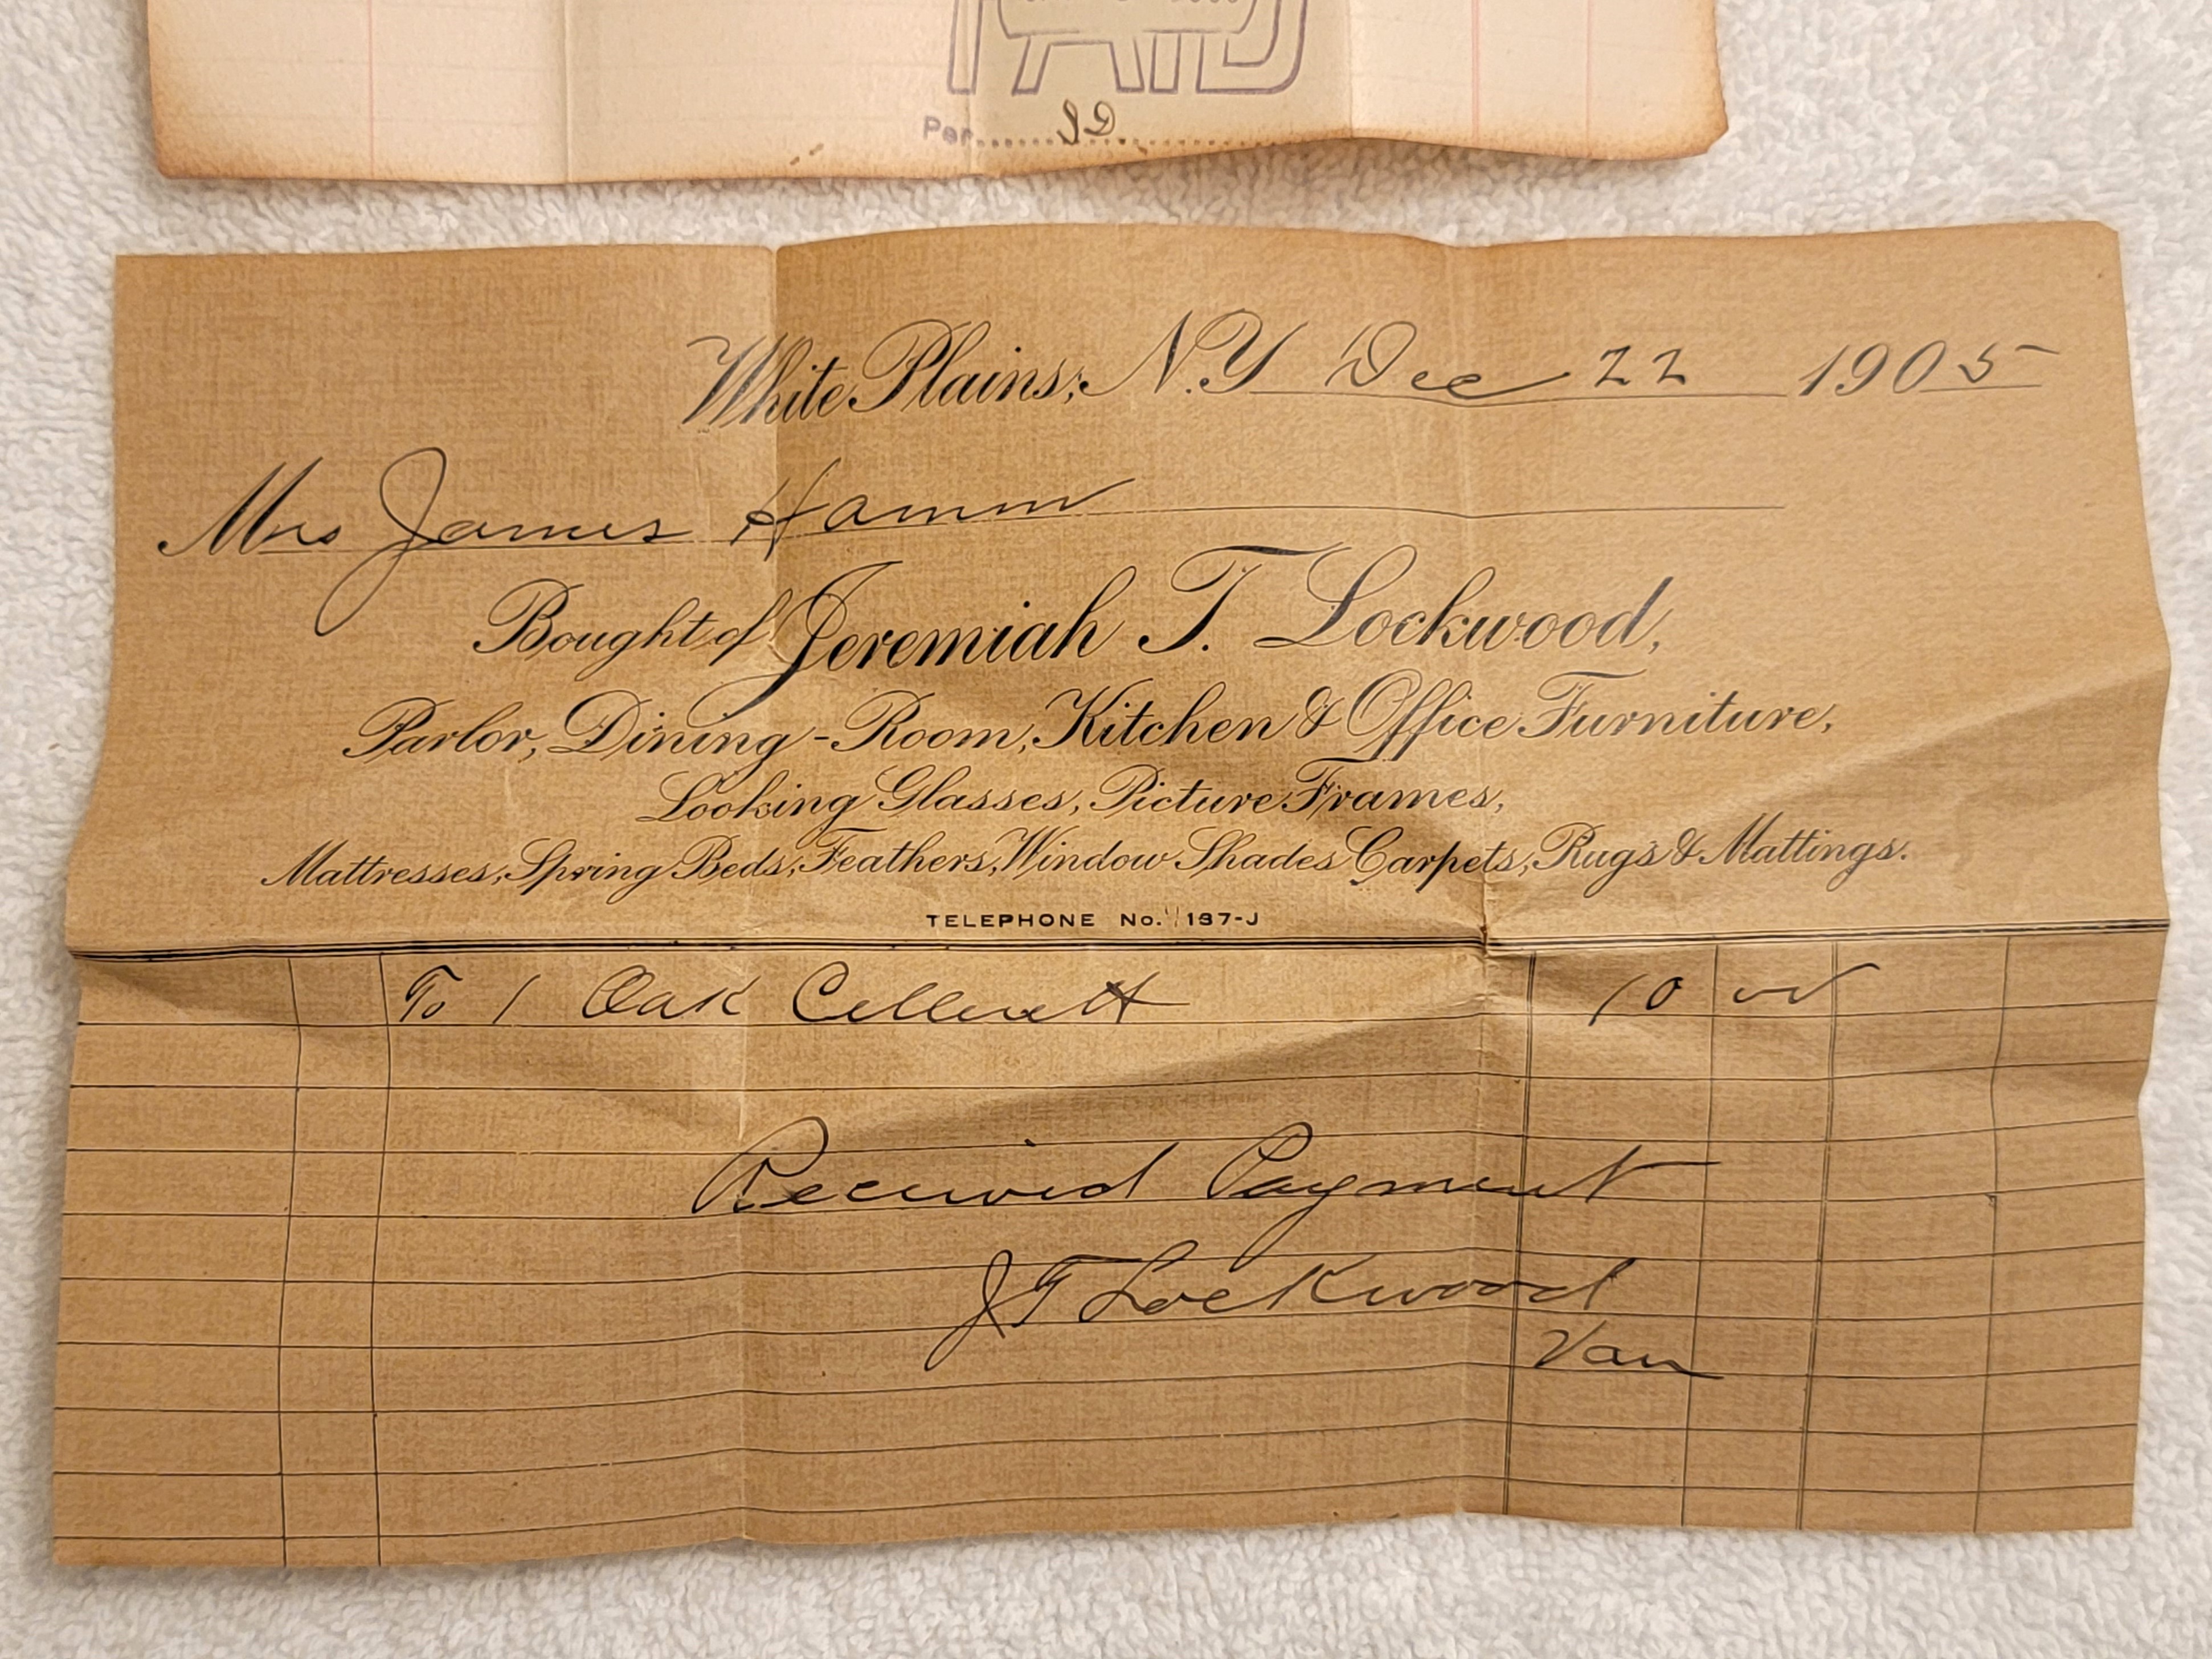 PAID
Per
White Plains, N.Y Dec 22 1905
Mrs James Hamm
Bought of Jeremiah T. Lockwood,
Parlor, Dining-Room, Kitchen & Office Furniture,
Looking Glasses, Picture Frames,
Mattresses, Spring Beds, Feathers, Window Shades Carpets, Rugs & Mattings.
TELEPHONE No. 137-J
To 1 Oak Cellerett 10 00
Received Payment
J T Lockwood
Van